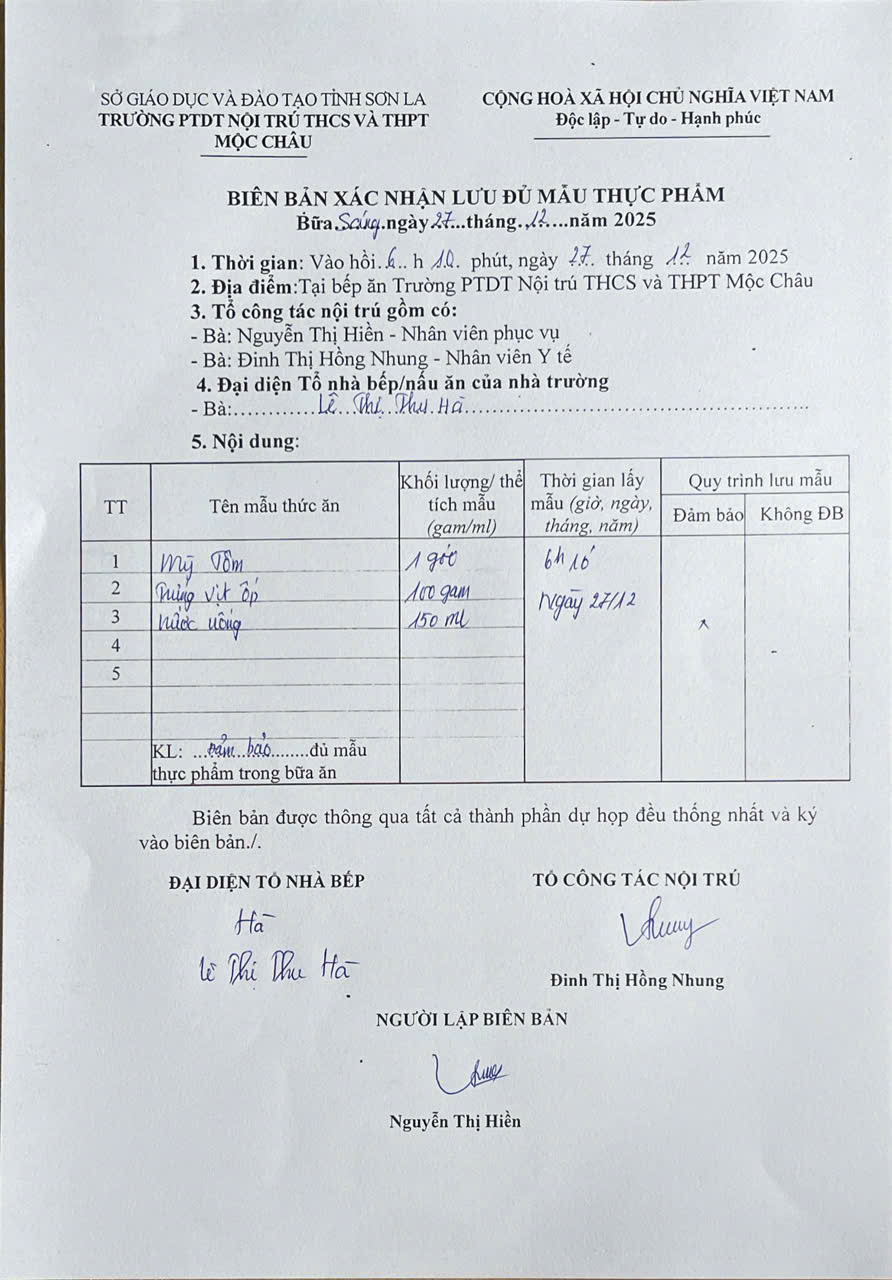 SỞ GIÁO DỤC VÀ ĐÀO TẠO TỈNH SƠN LA
TRƯỜNG PTDT NỘI TRÚ THCS VÀ THPT
MỘC CHÂU
CỘNG HOÀ XÃ HỘI CHỦ NGHĨA VIỆT NAM
Độc lập - Tự do - Hạnh phúc
BIÊN BẢN XÁC NHẬN LƯU ĐỦ MẪU THỰC PHẨM
Bữa Sáng ngày 27 tháng 12 năm 2025
1. Thời gian: Vào hồi 6 h 10 phút, ngày 27 tháng 12 năm 2025
2. Địa điểm:Tại bếp ăn Trường PTDT Nội trú THCS và THPT Mộc Châu
3. Tổ công tác nội trú gồm có:
- Bà: Nguyễn Thị Hiền - Nhân viên phục vụ
- Bà: Đinh Thị Hồng Nhung - Nhân viên Y tế
4. Đại diện Tổ nhà bếp/nấu ăn của nhà trường
- Bà: Lê Thị Thu Hà
5. Nội dung:
TT
Tên mẫu thức ăn
Khối lượng/ thể
tích mẫu
(gam/ml)
Thời gian lấy
mẫu (giờ, ngày,
tháng, năm)
Quy trình lưu mẫu
Đảm bảo
Không ĐB
1 Mỳ Tôm 1 gói 6h 10
2 Trứng vịt ốp 100 gam Ngày 27/12
3 Nước uống 150 ml
4
5
KL: đảm bảo đủ mẫu
thực phẩm trong bữa ăn
Biên bản được thông qua tất cả thành phần dự họp đều thống nhất và ký
vào biên bản./.
ĐẠI DIỆN TỔ NHÀ BẾP
Hà
Lê Thị Thu Hà
TỔ CÔNG TÁC NỘI TRÚ
Đinh Thị Hồng Nhung
NGƯỜI LẬP BIÊN BẢN
Nguyễn Thị Hiền